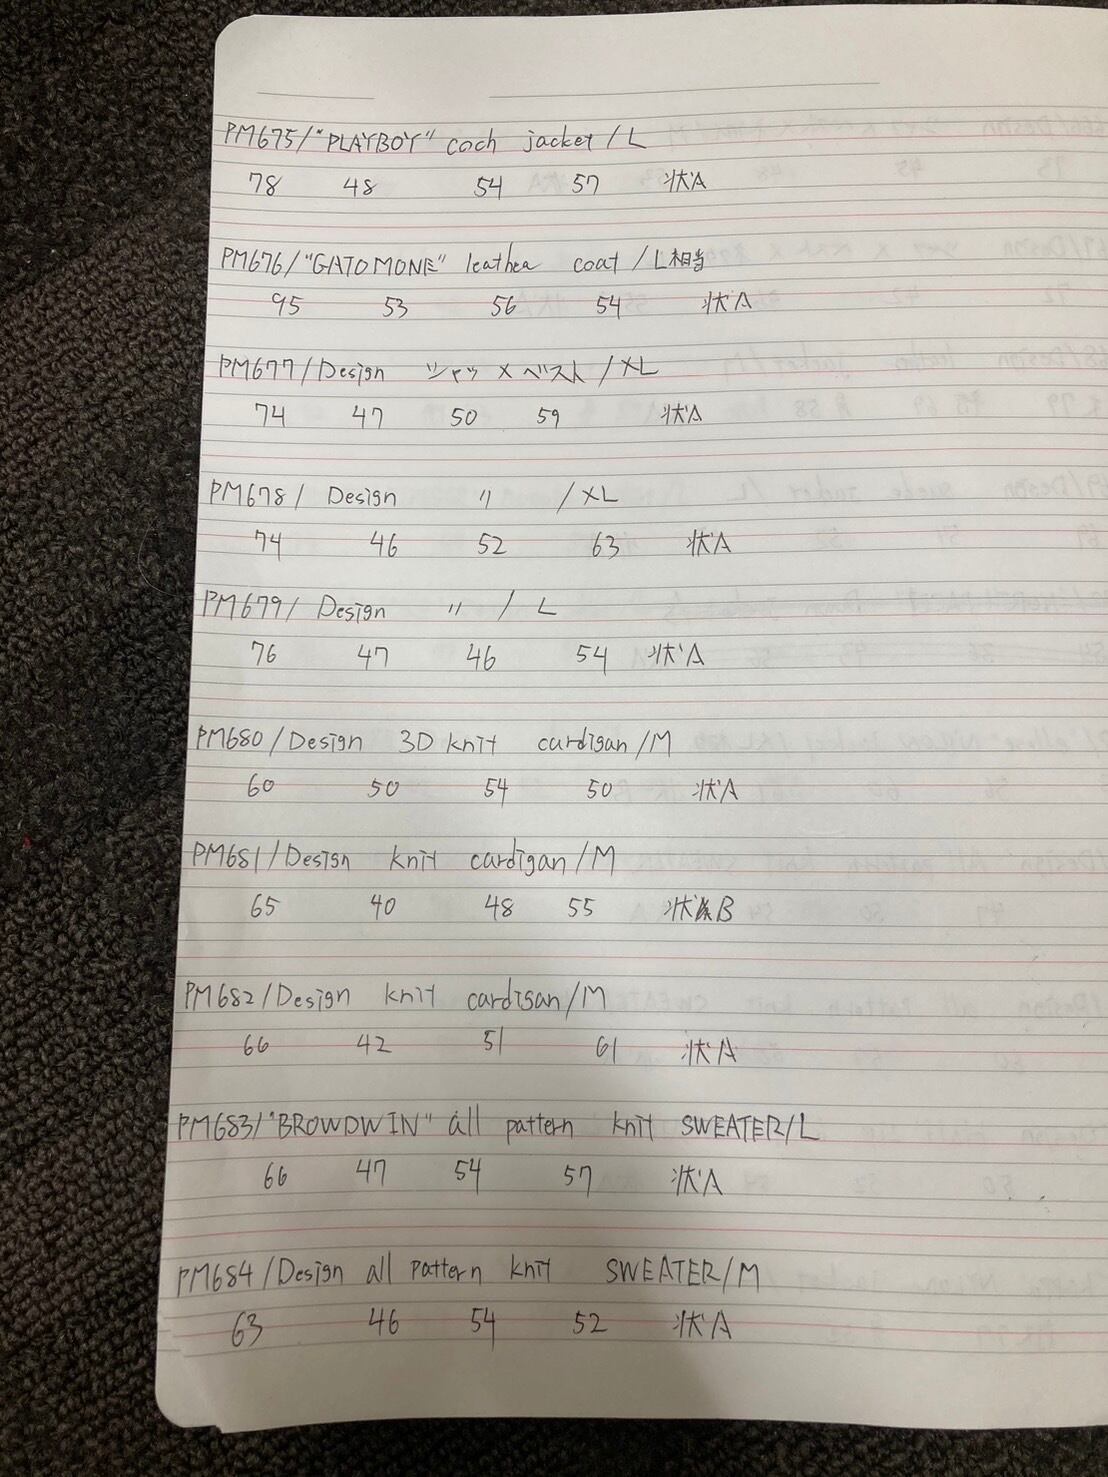 PM675/"PLAYBOY" coch jacket/L
78 48 54 57 状A
PM676/"GATOMONE" leather coat/L相当
95 53 56 54 状A
PM677/Design シャツ×ベスト/XL
74 47 50 59 状A
PM678/Design 〃 /XL
74 46 52 63 状A
PM679/Design 〃 / L
76 47 46 54 状A
PM680/Design 3D knit cardigan/M
60 50 54 50 状A
PM681/Design knit cardigan/M
65 40 48 55 状B
PM682/Design knit cardigan/M
66 42 51 61 状A
PM683/"BROWDWIN" all pattern knit SWEATER/L
66 47 54 57 状A
PM684/Design all pattern knit SWEATER/M
63 46 54 52 状A